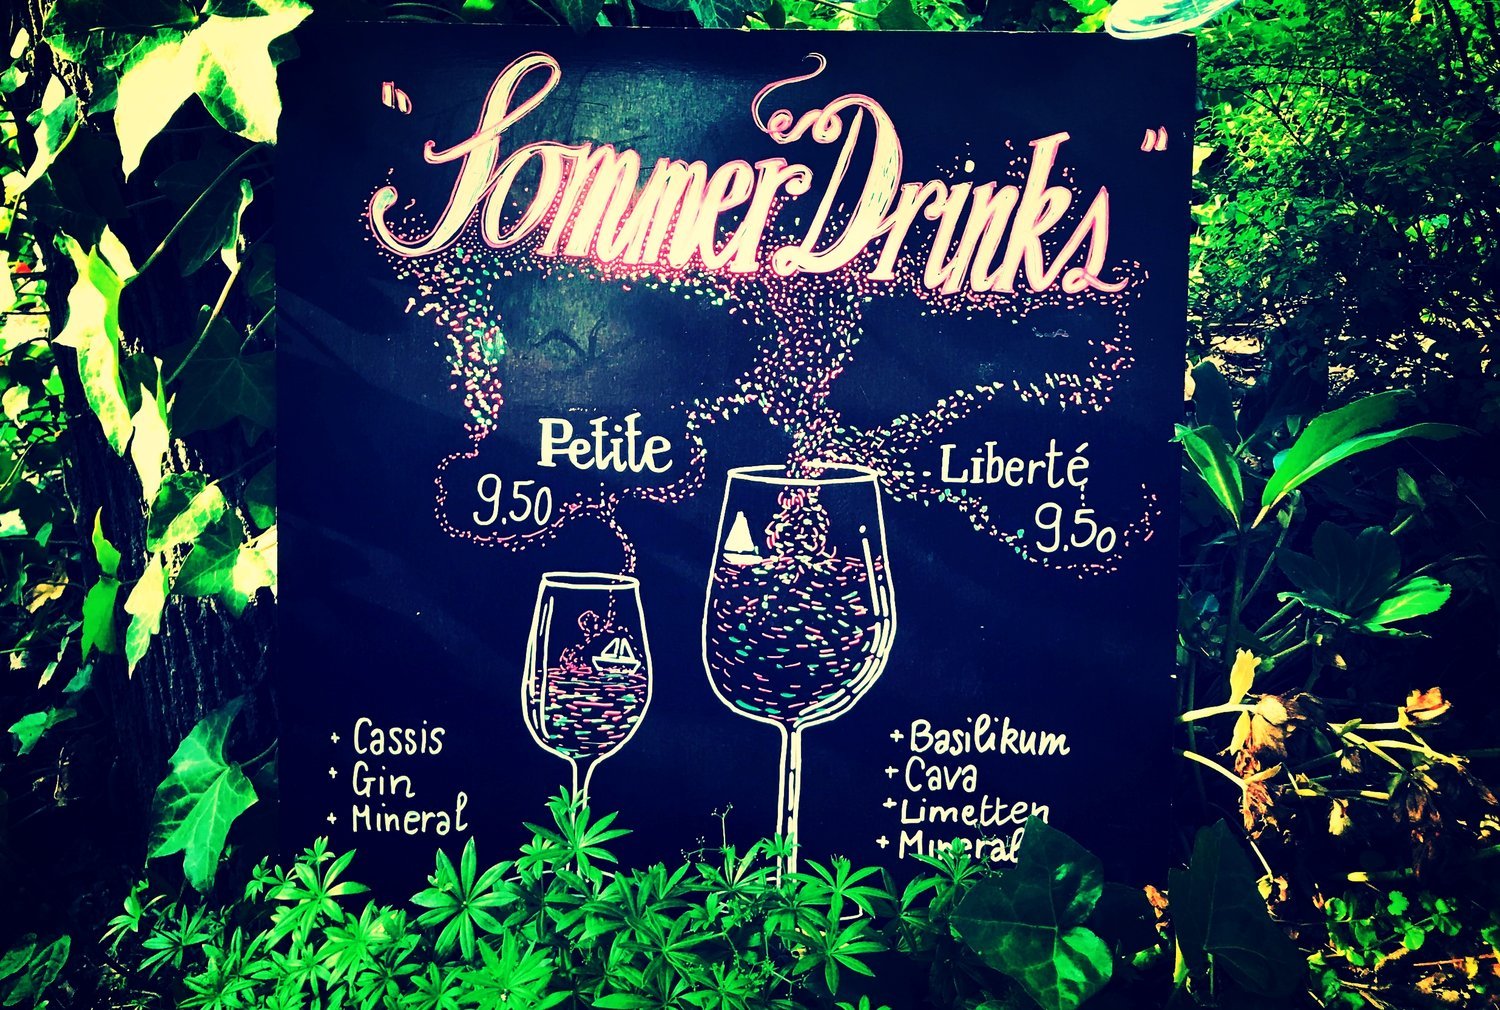 "Sommer Drinks"
Petite
9.50
Liberté
9.50
+ Cassis
+ Gin
+ Mineral
+ Basilikum
+ Cava
+ Limetten
+ Mineral